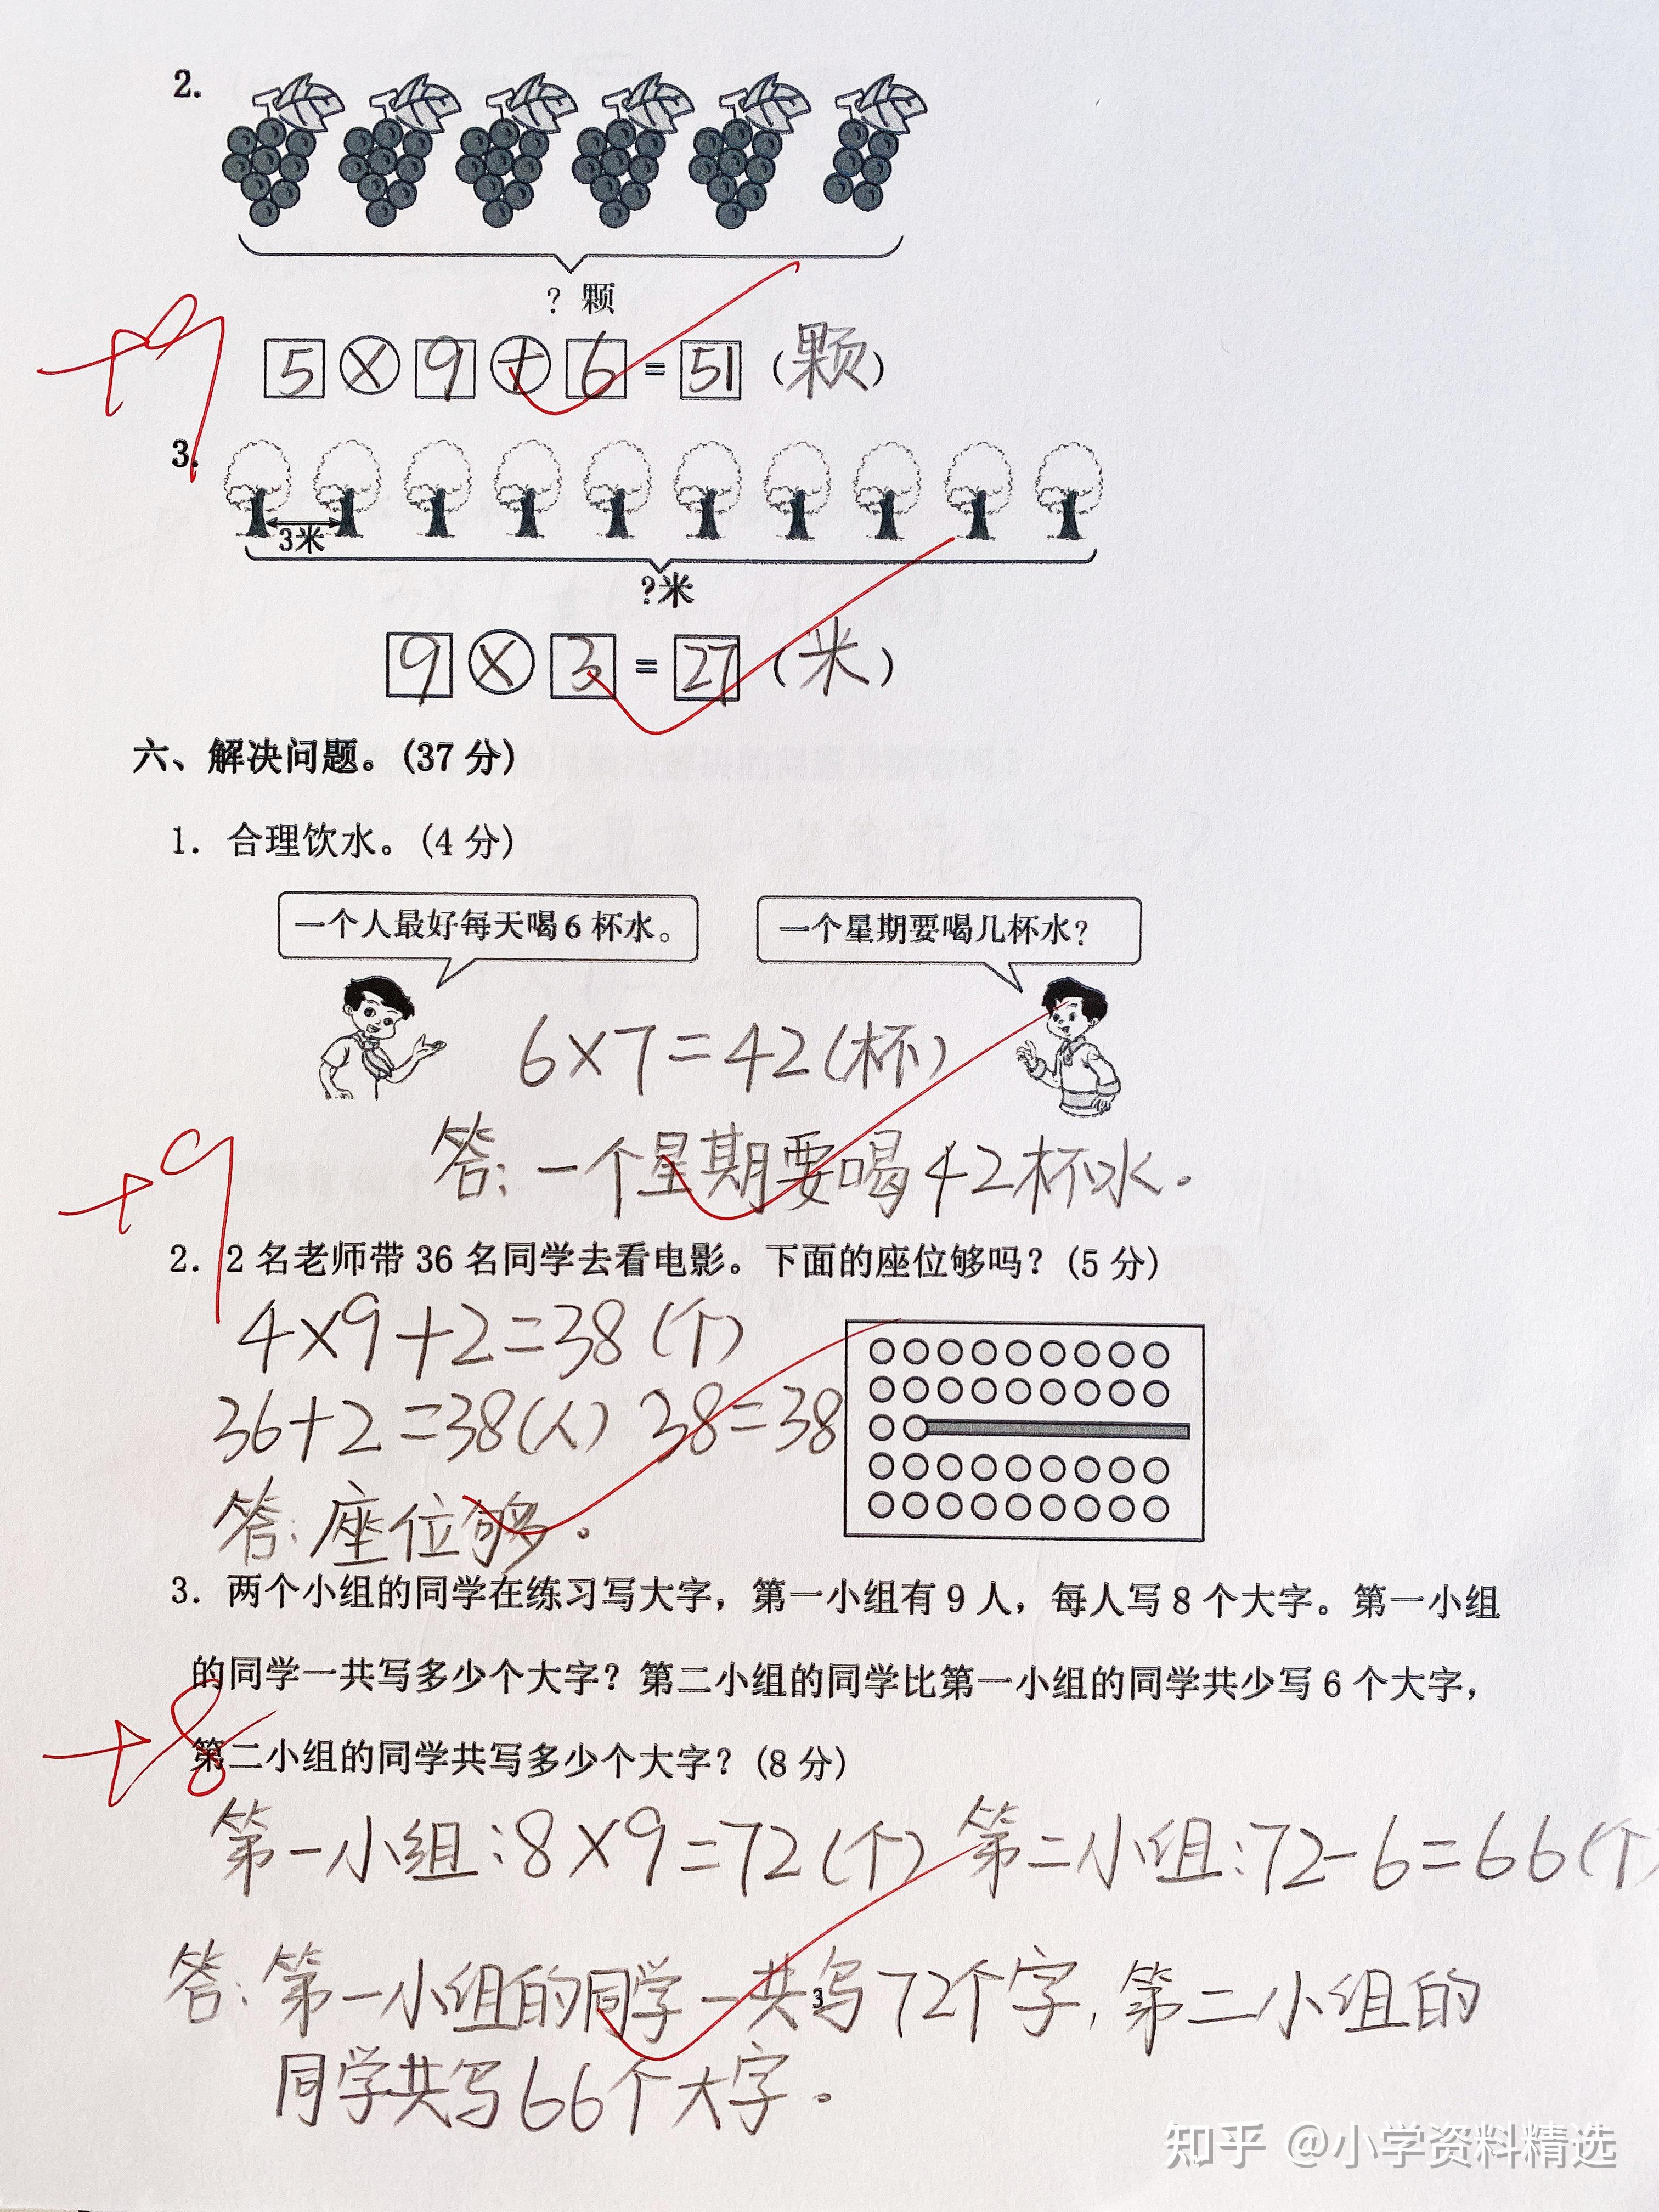 2.
? 颗
+9
5 × 9 + 6 = 51 (颗)
3.
3米
?米
9 × 3 = 27 (米)
六、解决问题。(37 分)
1. 合理饮水。(4 分)
一个人最好每天喝 6 杯水。
一个星期要喝几杯水?
6×7=42(杯)
答:一个星期要喝42杯水.
+9
2. 2 名老师带 36 名同学去看电影。下面的座位够吗? (5 分)
4×9+2=38 (个)
36+2=38(人) 38=38
答:座位够。
3. 两个小组的同学在练习写大字，第一小组有 9 人，每人写 8 个大字。第一小组
的同学一共写多少个大字? 第二小组的同学比第一小组的同学共少写 6 个大字，
+8
第二小组的同学共写多少个大字? (8 分)
第一小组:8×9=72(个) 第二小组:72-6=66(个)
答:第一小组的同学一共写72个字,第二小组的
3
同学共写66个大字。
知乎 @小学资料精选